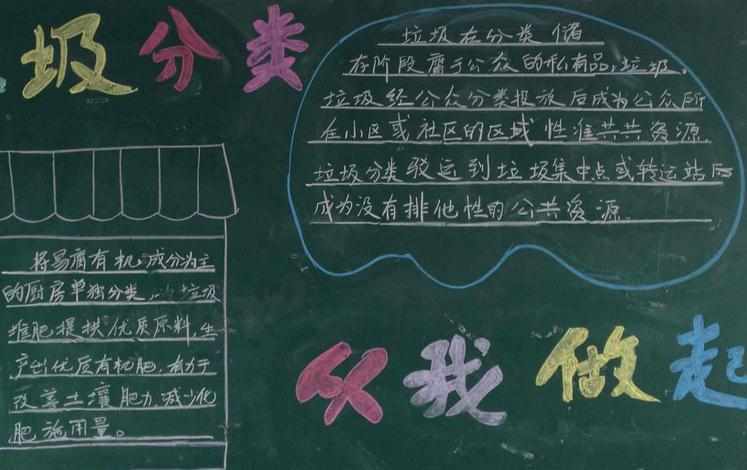 圾分类
垃圾在分类储
存阶段属于公众的私有品,垃圾,
垃圾经公众分类投放后成为公众所
在小区或社区的区域性准共共资源
垃圾分类驳运到垃圾集中点或转运站后
成为没有排他性的公共资源
将易腐有机成分为主
的厨房单独分类,垃圾
堆肥提供优质原料,生
产出优质有机肥,有力于
改善土壤肥力,减少化
肥施用量。
从我做起